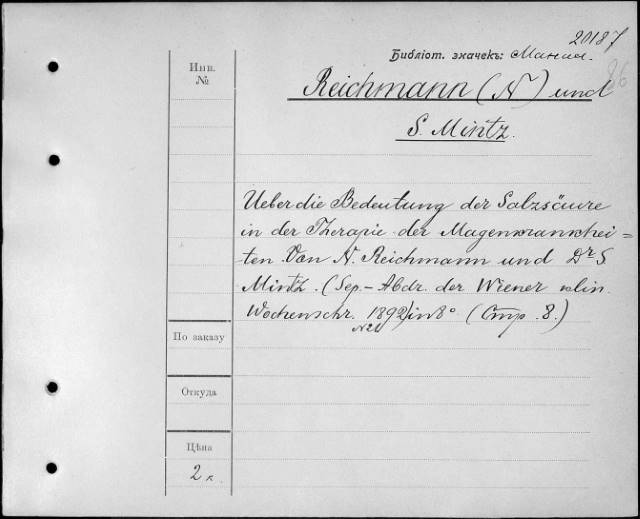 20187
Библіот. значекъ:
86
Инв.
№
Reichmann (N) und
S. Mintz.
Ueber die Bedeutung der Salzsäure
in der Therapie der Magenkrankhei=
ten. Von N. Reichmann und Dr S
Mintz. (Sep.-Abdr. der Wiener klin.
Wochenschr. 1892) in 8° (Стр. 8.)
По заказу
Откуда
Цѣна
2 к.